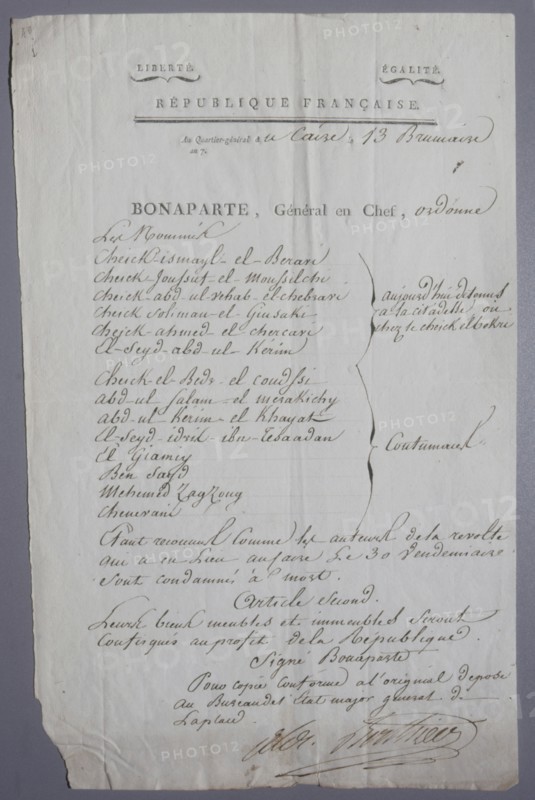 LIBERTÉ. ÉGALITÉ.
RÉPUBLIQUE FRANÇAISE.
Au Quartier-général au Caire, 13 Brumaire
an 7.
BONAPARTE, Général en Chef, ordonne
Les Nommés
Cheick-ismayl-el-Beravi
Cheick Joussuf-el-Moussilchi
Cheick-abd-ul-vehab-el-chebravi
Cheick Soliman-el
Cheick-ahmed-el-chercavi
El-Seyd-abd-ul-Kerim
aujourd'hui détenus
a la citadelle ou
chez le cheick el bekri
Cheick-el-Bedr-el coudssi
abd-ul Salam-el merakichy
abd-ul Kerim-el Khayat
El-Seyd-idris-ibn-
El Giamy
Ben Sayd
Mehemed
- Contumaux
Etant reconnus Comme les auteurs de la revolte
qui a eu Lieu au Caire Le 30 Vendemiaire
Sont condamnés à mort.
Article Second.
Leurs biens meubles et immeubles seront
Confisqués au profit de la République.
Signé Bonaparte
Pour copie conforme a l'original deposé
au Bureau de l'Etat major general de
La place.
PHOTO12